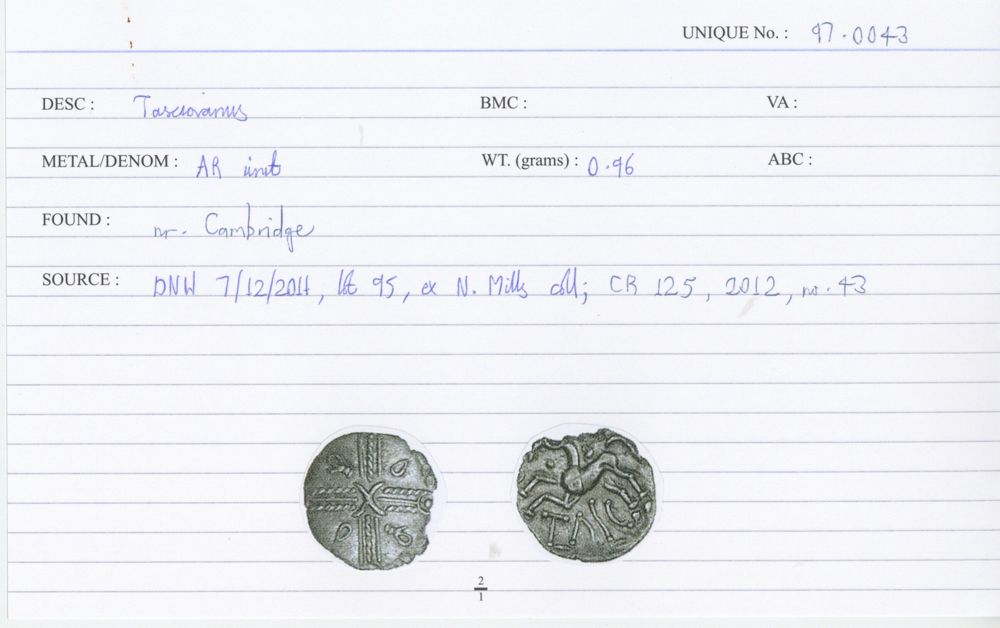 UNIQUE No. : 97.0043
DESC : Tasciovanus BMC : VA :
METAL/DENOM : AR unit WT. (grams) : 0.96 ABC :
FOUND : nr. Cambridge
SOURCE : DNW 7/12/2011, lot 95, ex N. Mills coll; CR 125, 2012, no. 43
2
1